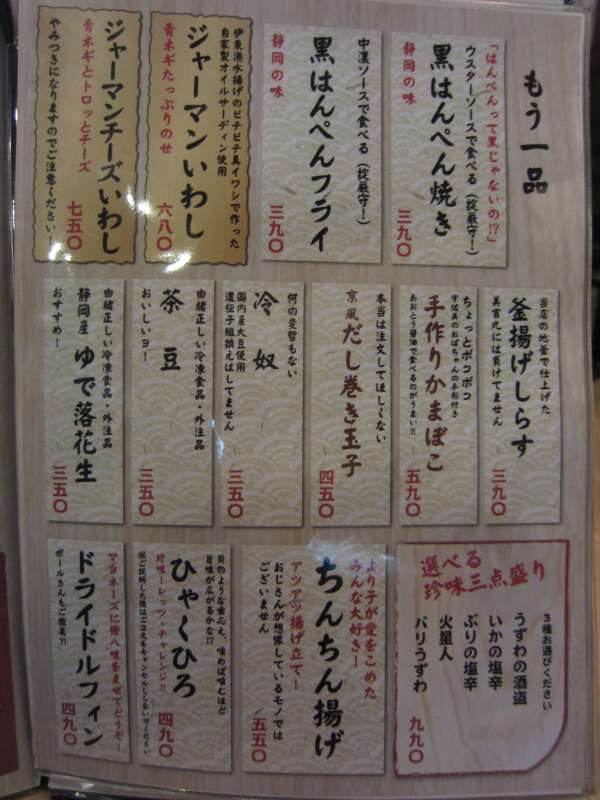 もう一品
「はんぺんって黒じゃないの!?」
ウスターソースで食べる(掟厳守!)
黒はんぺん焼き
静岡の味
三九〇
中濃ソースで食べる(掟厳守!)
黒はんぺんフライ
静岡の味
三九〇
伊東港水揚げのピチピチ真イワシで作った
自家製オイルサーディン使用
ジャーマンいわし
青ネギたっぷりのせ
六八〇
ジャーマンチーズいわし
青ネギとトロッとチーズ
やみつきになりますのでご注意ください!
七五〇
当店の地釜で仕上げた
釜揚げしらす
美吉丸には負けてません
三九〇
ちょっとボコボコ
宇佐美のおばちゃんの手形付き
手作りかまぼこ
あおとう醤油で食べるのがうまい!!
五九〇
本当は注文してほしくない
京風だし巻き玉子
四五〇
何の変哲もない
冷奴
国内産大豆使用
遺伝子組換えはしてません
三五〇
由緒正しい冷凍食品・外注品
茶豆
おいしいヨ!
三五〇
由緒正しい冷凍食品・外注品
静岡産 ゆで落花生
おすすめ!
三五〇
選べる
珍味三点盛り
3種お選びください
うずわの酒盗
いかの塩辛
ぶりの塩辛
火星人
バリうずわ
九九〇
より子が愛をこめた
みんな大好き!
ちんちん揚げ
アツアツ揚げ立てー
おじさんが想像しているモノでは
ございません
五五〇
貝のような歯応え、噛めば噛むほど
旨味が広がるかな!?
ひゃくひろ
珍味ーレッツ・チャレンジ!!
※ご説明した後はご注文をキャンセルしないでください
四九〇
マヨネーズに極八味をまぜてどうぞー
ドライドルフィン
ポールさんもご推薦?!
四九〇